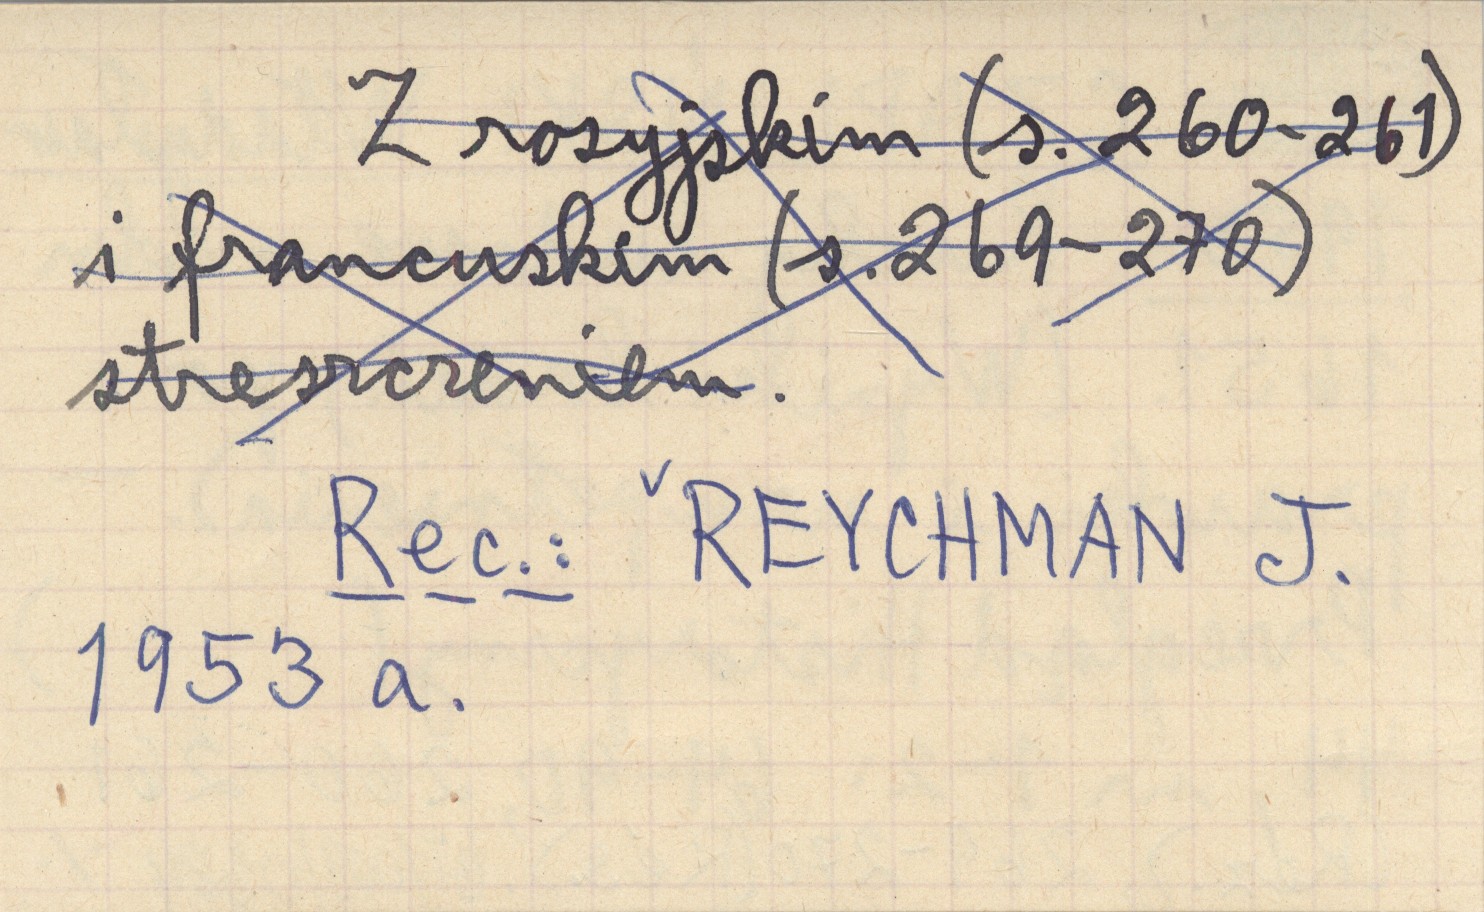 Z rosyjskim (s. 260-261)
i francuskim (s. 269-270)
streszczeniem.
Rec.: ᵛREYCHMAN J.
1953 a.